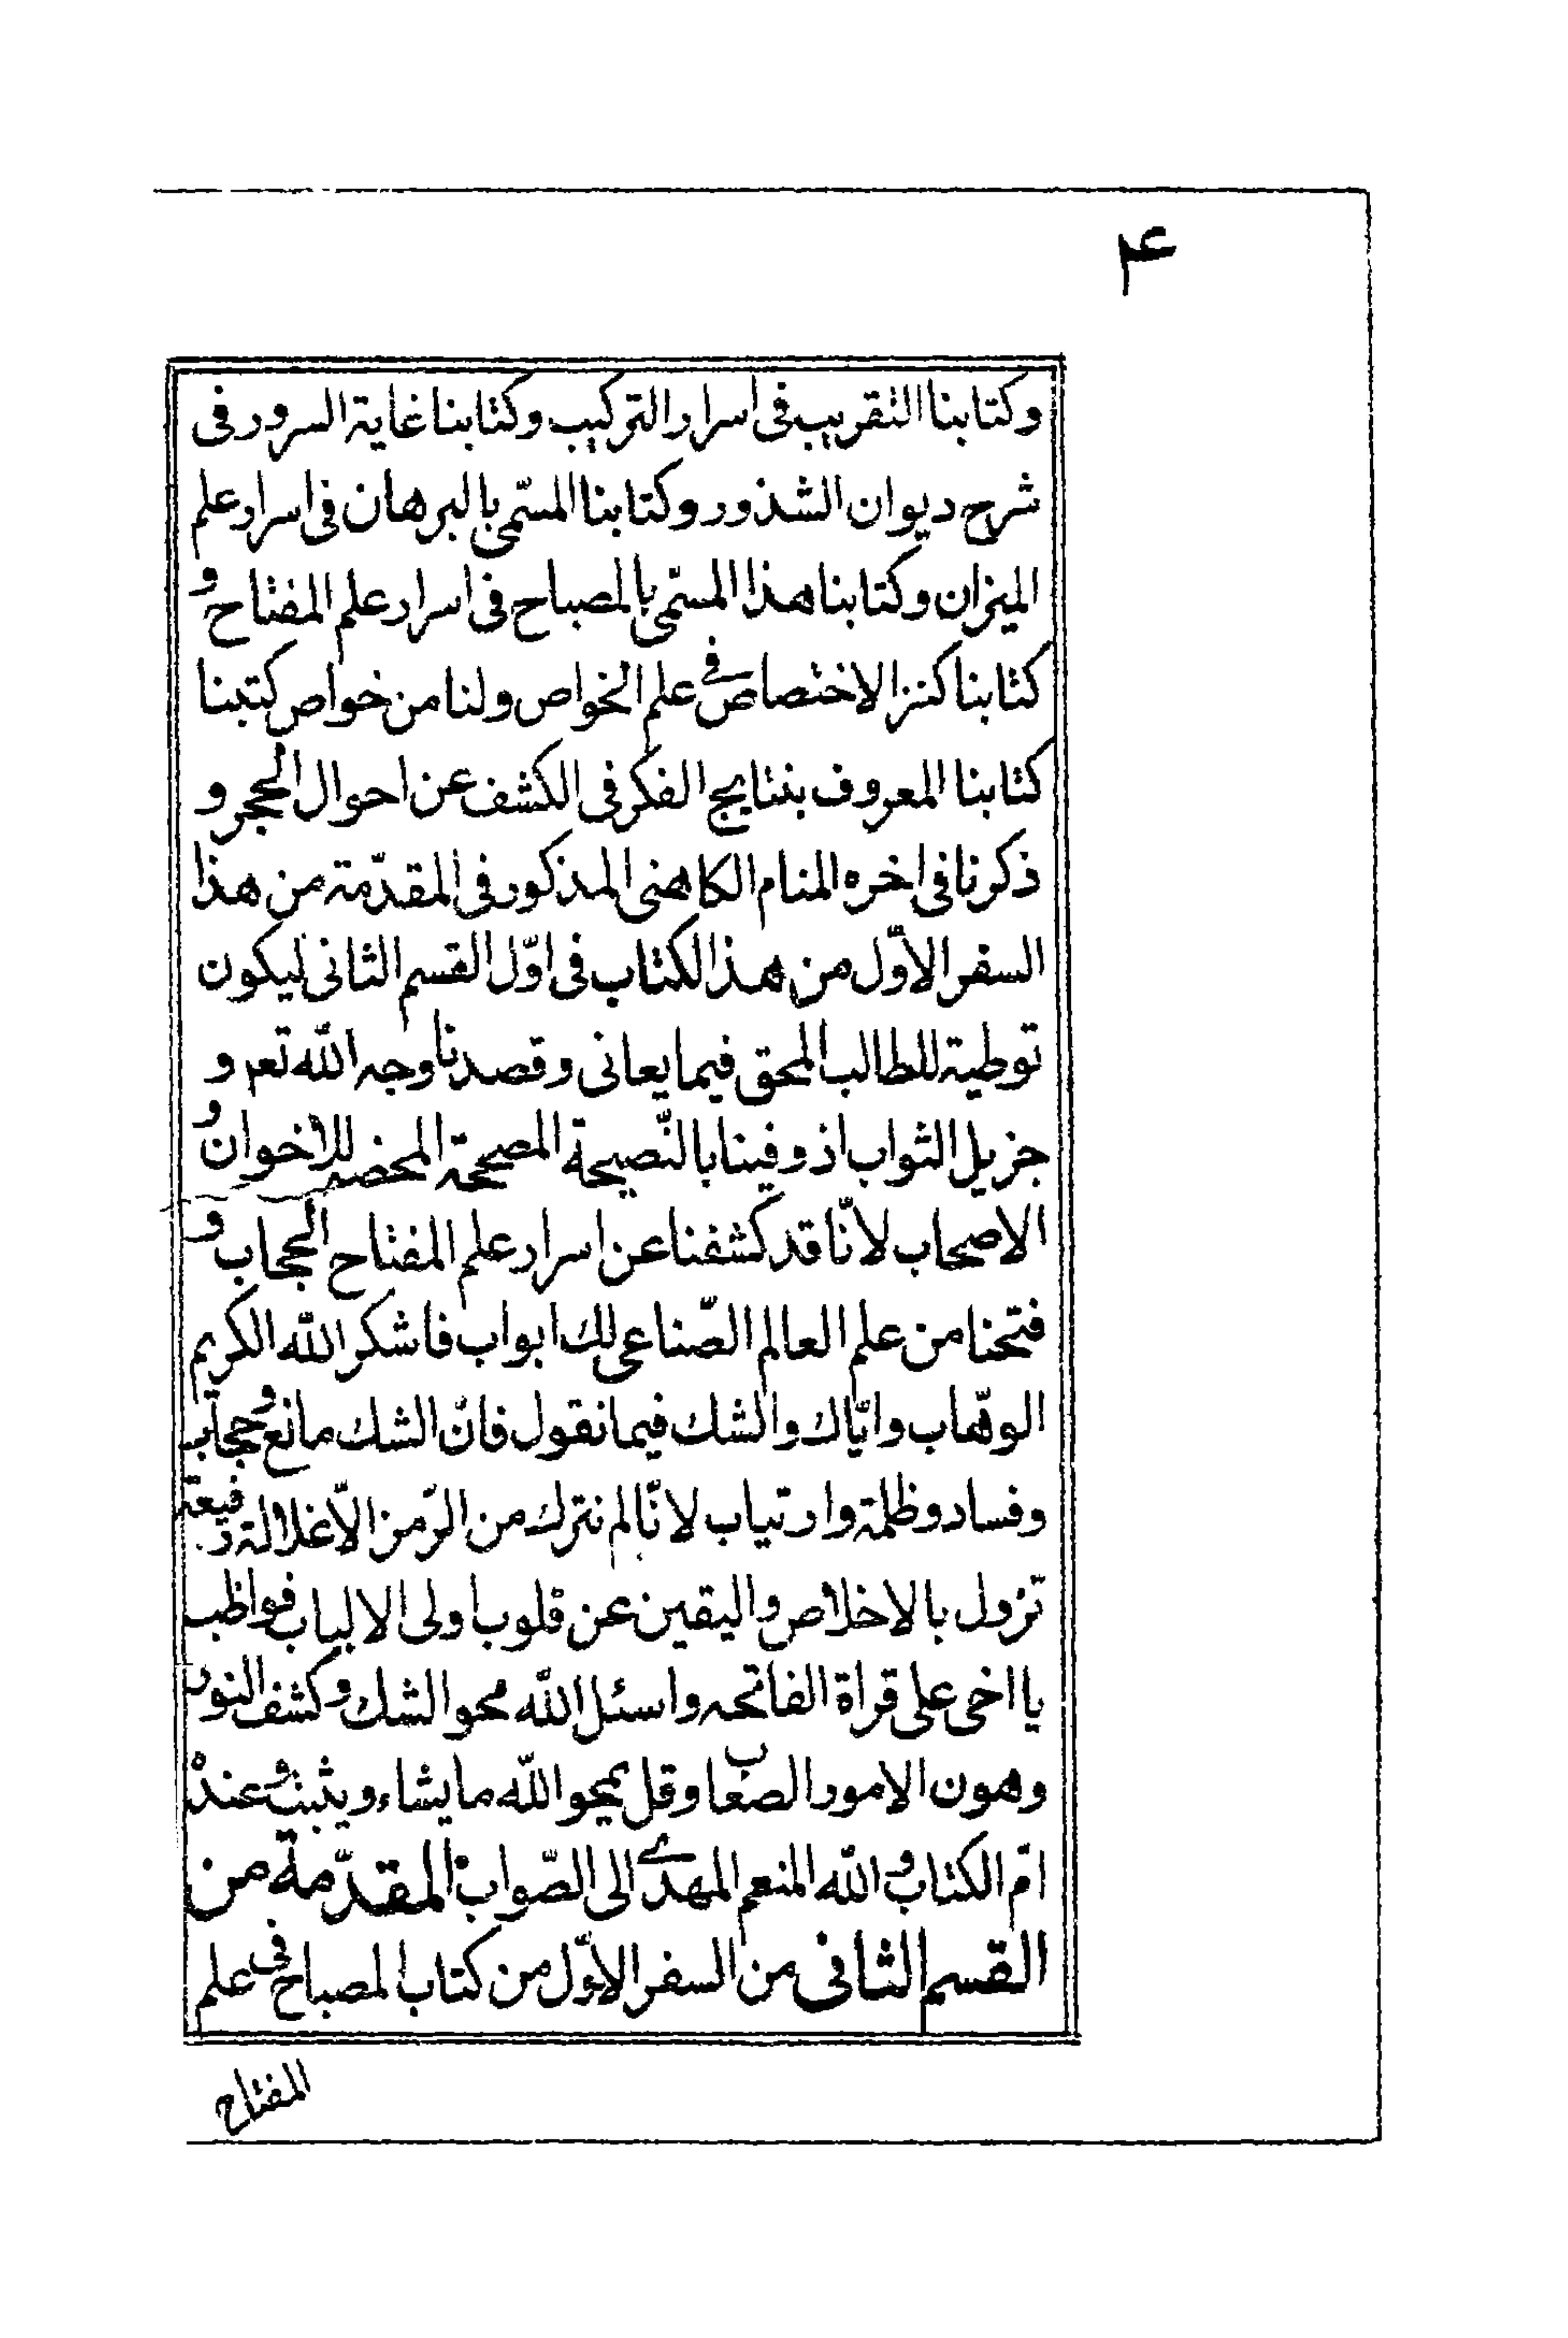 ۴
وكتابنا التقريب فى اسرار التركيب وكتابنا غاية السرور فى
شرح ديوان الشذور وكتابنا المسّمى بالبرهان فى اسرار علم
الميزان وكتابنا هذا المسّمى بالمصباح فى اسرار علم المفتاح و
كتابنا كنز الاختصاص فى علم الخواص ولنا من خواص كتبنا
كتابنا المعروف بنتايج الفكر فى الكشف عن احوال الحجر و
ذكرنا فى اخره المنام الكاهنى المذكور فى المقدّمة من هذا
السفر الاوّل من هذا الكتاب فى اوّل القسم الثانى ليكون
توطية للطالب المحق فيما يعانى وقصدنا وجه اللّه تعم و
جزيل الثواب اذ وفينا بالنّصيحة المصححة المحضر للاخوان و
الاصحاب لانّا قد كشفنا عن اسرار علم المفتاح الحجاب و
فتحنا من علم العالم الصّناعى لك ابواب فاشكر اللّه الكريم
الوهّاب وايّاك والشك فيما نقول فانّ الشك مانع وحجاب
وفساد وظلمة وارتياب لانّا لم نترك من الرّمز الّا غلالة رفيعة
تزول بالاخلاص واليقين عن قلوب اولى الالباب فواظب
يا اخى على قراة الفاتحه واسئل اللّه محو الشك وكشف النور
وهون الامور الصعاب وقل يمحو اللّه ما يشاء ويثبت وعنده
امّ الكتاب و اللّه المنعم المهدى الى الصّواب المقدّمة من
القسم الثانى من السفر الاوّل من كتاب المصباح فى علم
المفتاح